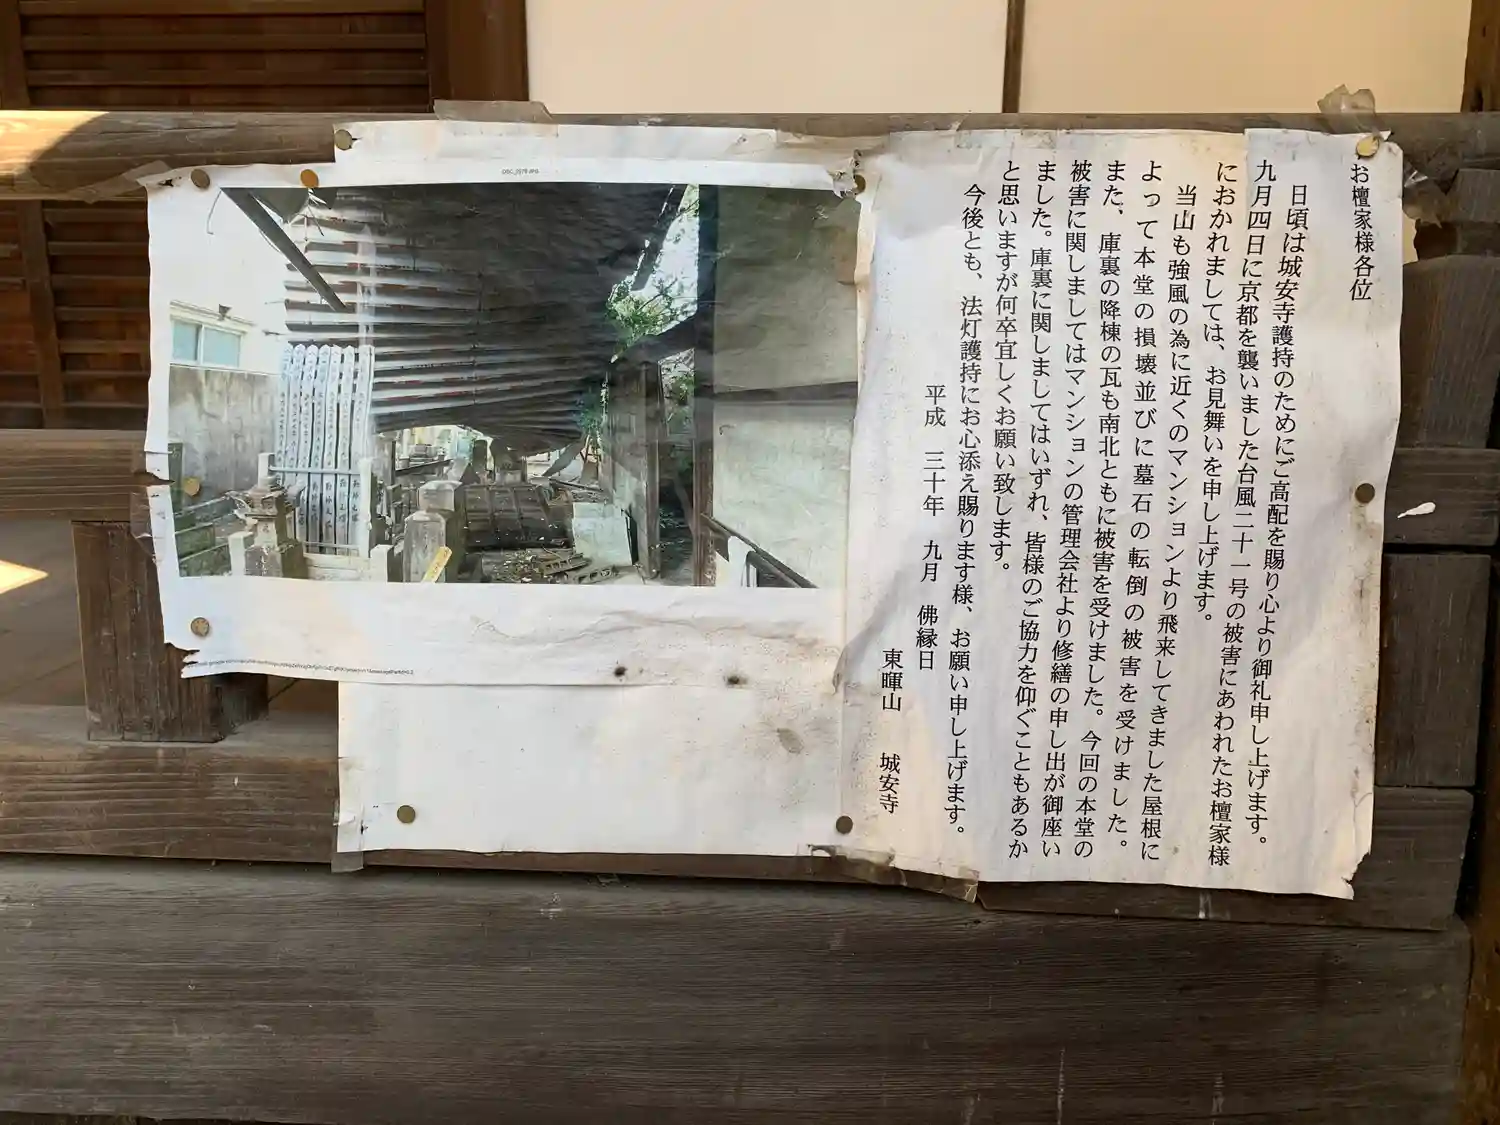 お檀家様各位
日頃は城安寺護持のためにご高配を賜り心より御礼申し上げます。
九月四日に京都を襲いました台風二十一号の被害にあわれたお檀家様
におかれましては、お見舞いを申し上げます。
当山も強風の為に近くのマンションより飛来してきました屋根に
よって本堂の損壊並びに墓石の転倒の被害を受けました。
また、庫裏の降棟の瓦も南北ともに被害を受けました。今回の本堂の
被害に関しましてはマンションの管理会社より修繕の申し出が御座い
ました。庫裏に関しましてはいずれ、皆様のご協力を仰ぐこともあるか
と思いますが何卒宜しくお願い致します。
今後とも、法灯護持にお心添え賜ります様、お願い申し上げます。
平成 三十年 九月 佛縁日
東暉山 城安寺